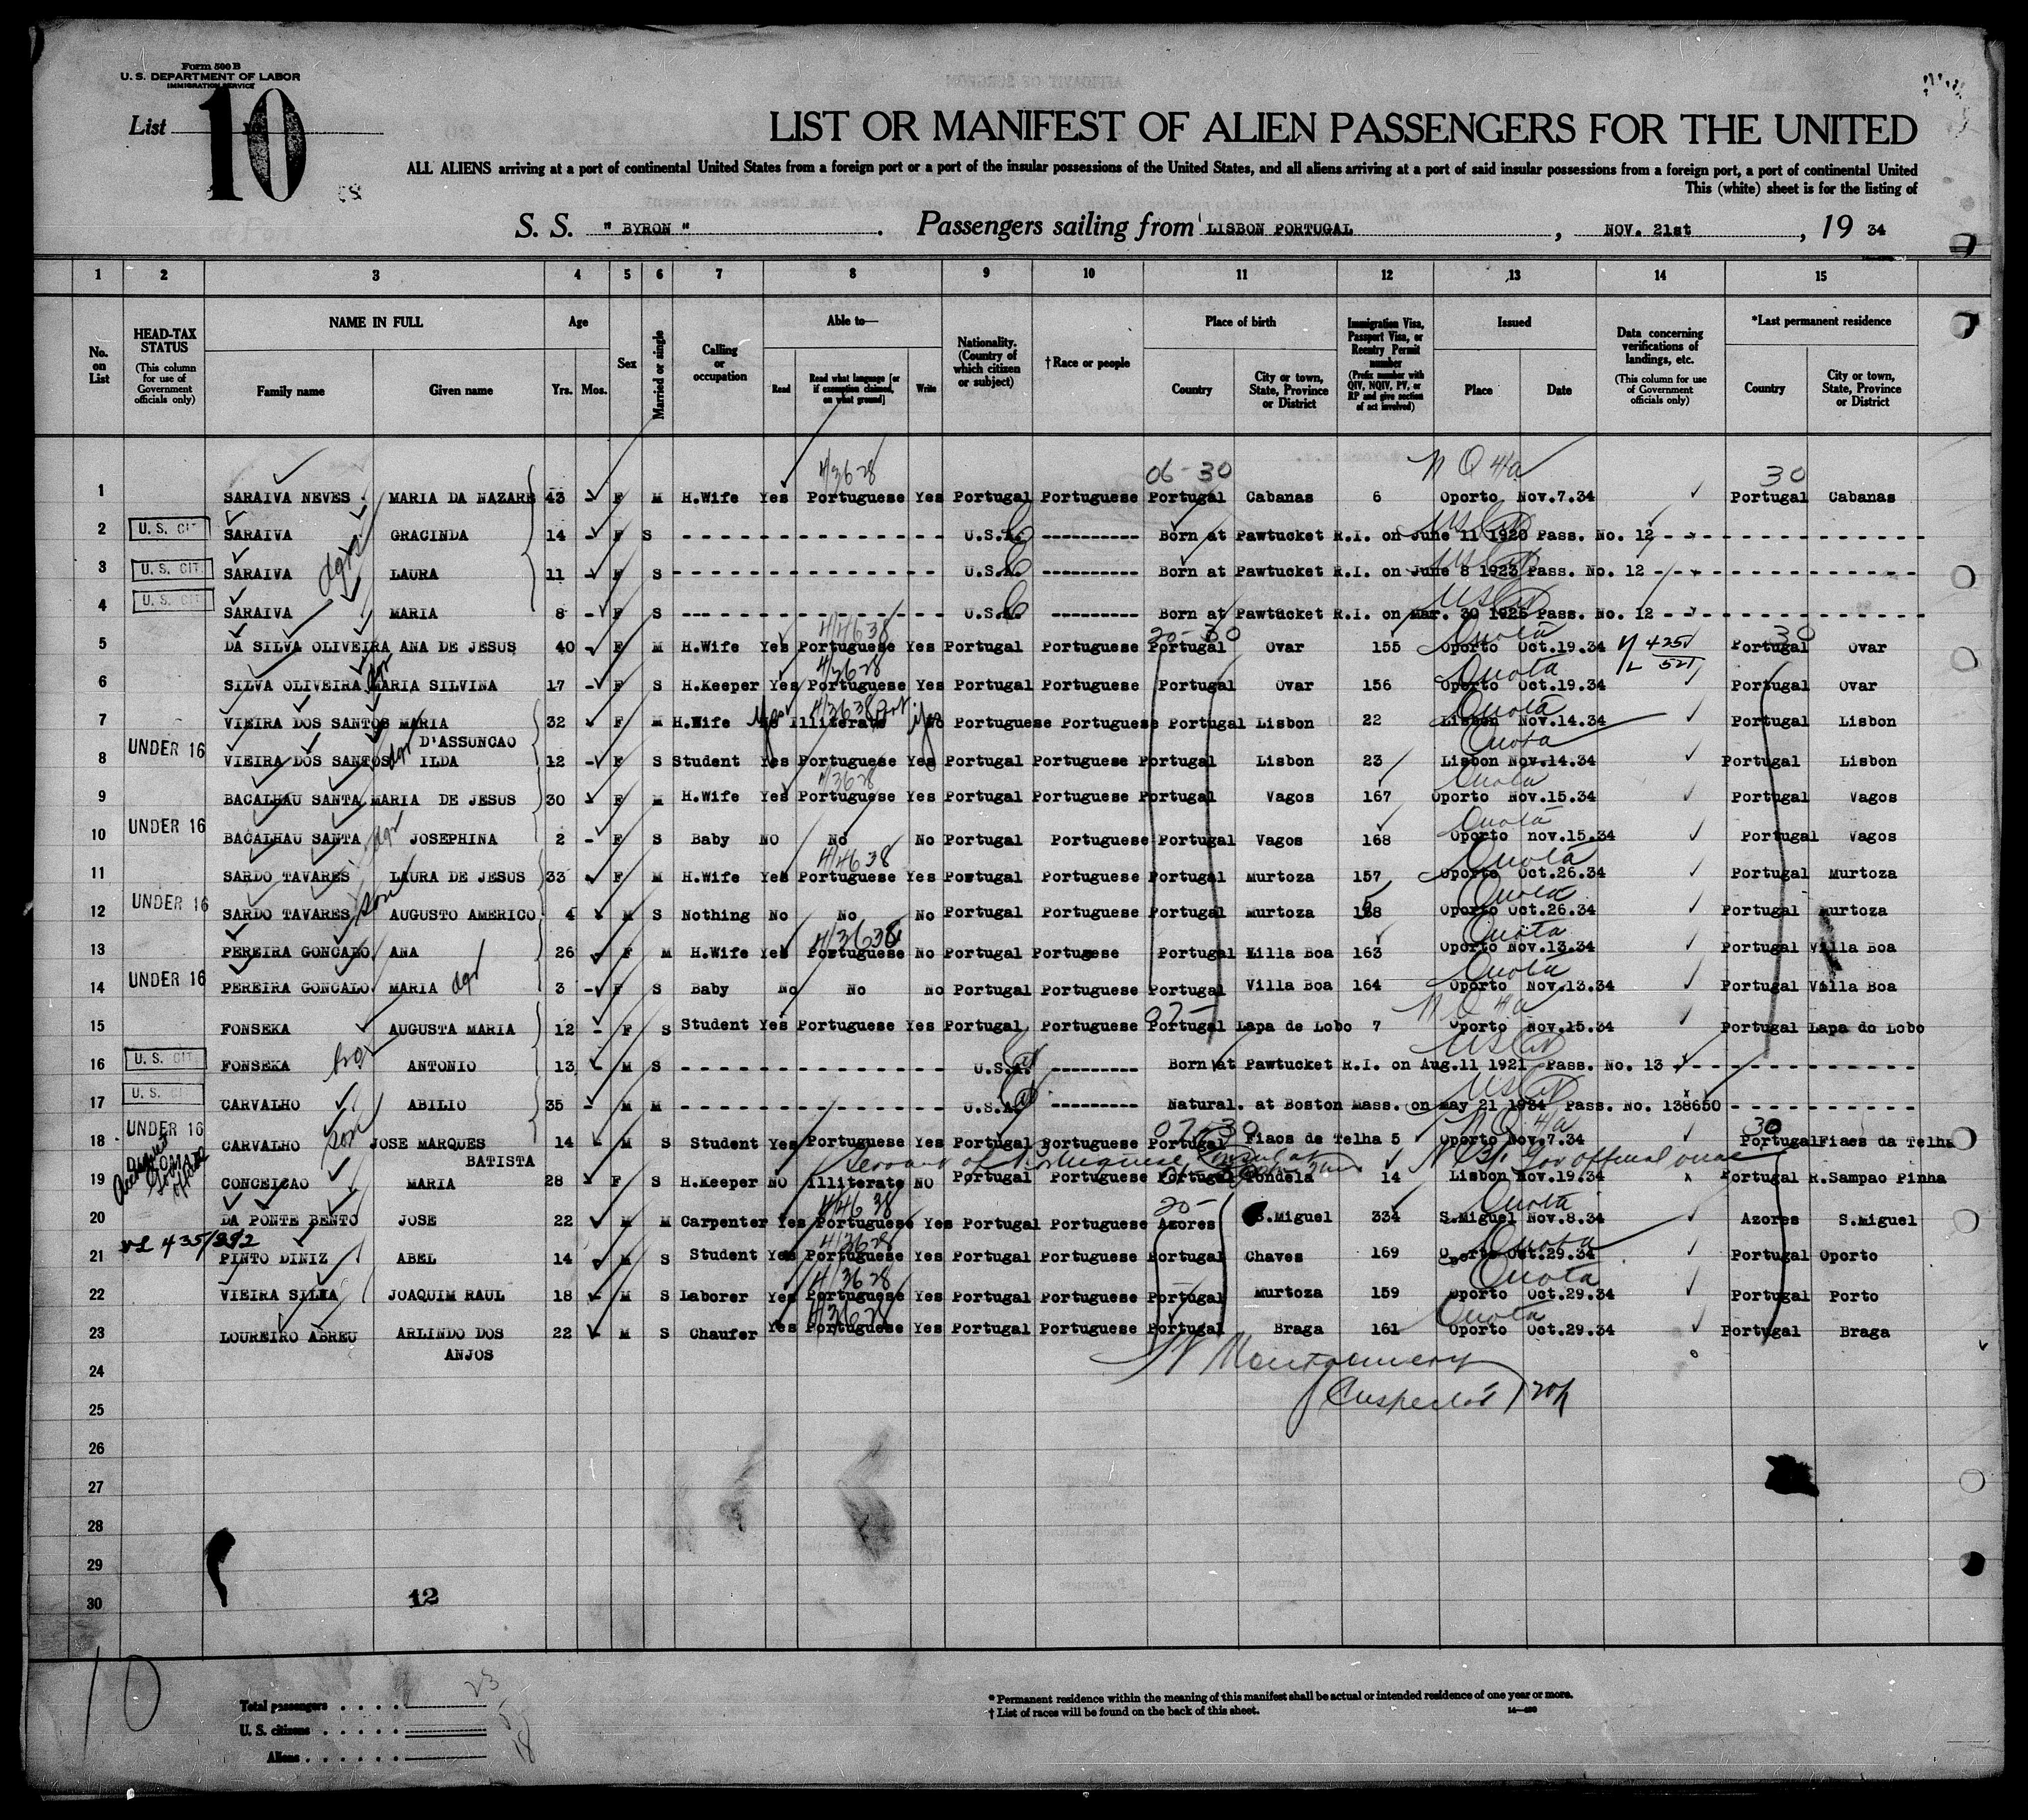 Form 500 B
U. S. DEPARTMENT OF LABOR
IMMIGRATION SERVICE
List 10
LIST OR MANIFEST OF ALIEN PASSENGERS FOR THE UNITED
ALL ALIENS arriving at a port of continental United States from a foreign port or a port of the insular possessions of the United States, and all aliens arriving at a port of said insular possessions from a foreign port, a port of continental United
This (white) sheet is for the listing of
S. S. " BYRON ". Passengers sailing from LISBON PORTUGAL, NOV. 21st, 19 34
1 2 3 4 5 6 7 8 9 10 11 12 13 14 15
No. on List
HEAD-TAX STATUS (This column for use of Government officials only)
NAME IN FULL Family name Given name
Age Yrs. Mos.
Sex
Married or single
Calling or occupation
Able to— Read Read what language [or if exemption claimed, on what ground] Write
Nationality. (Country of which citizen or subject)
† Race or people
Place of birth Country City or town, State, Province or District
Immigration Visa, Passport Visa, or Reentry Permit number (Prefix number with QIV, NQIV, PV, or RP and give section of act involved)
Issued Place Date
Data concerning verifications of landings, etc. (This column for use of Government officials only)
*Last permanent residence Country City or town, State, Province or District
4/3628 06-30 N Q 4a 30
1 SARAIVA NEVES MARIA DA NAZARE 43 - F M H.Wife Yes Portuguese Yes Portugal Portuguese Portugal Cabanas 6 Oporto Nov.7.34 Portugal Cabanas
2 U. S. CIT. SARAIVA GRACINDA 14 - F S U.S.A. Born at Pawtucket R.I. on June 11 1920 Pass. No. 12
3 U. S. CIT. SARAIVA dgr LAURA 11 - F S U.S.A. Born at Pawtucket R.I. on June 8 1923 Pass. No. 12
4 U. S. CIT. SARAIVA MARIA 8 - F S U.S.A. Born at Pawtucket R.I. on Mar. 30 1926 Pass. No. 12
4/4638 20-30 Quota 30
5 DA SILVA OLIVEIRA ANA DE JESUS 40 - F M H.Wife Yes Portuguese Yes Portugal Portuguese Portugal Ovar 155 Oporto Oct.19.34 Portugal Ovar
4/3628 Quota
6 SILVA OLIVEIRA dgr MARIA SILVINA 17 - F S H.Keeper Yes Portuguese Yes Portugal Portuguese Portugal Ovar 156 Oporto Oct.19.34 Portugal Ovar
4/3638 Port. Quota
7 VIEIRA DOS SANTOS MARIA D'ASSUNCAO 32 F M H.Wife Yes Illiterate Yes Portuguese Portuguese Portugal Lisbon 22 Lisbon Nov.14.34 Portugal Lisbon
Quota
8 UNDER 16 VIEIRA DOS SANTOS dgr ILDA 12 - F S Student Yes Portuguese Yes Portugal Portuguese Portugal Lisbon 23 Lisbon Nov.14.34 Portugal Lisbon
4/3628 Quota
9 BACALHAU SANTA MARIA DE JESUS 30 - F M H.Wife Yes Portuguese Yes Portugal Portuguese Portugal Vagos 167 Oporto Nov.15.34 Portugal Vagos
Quota
10 UNDER 16 BACALHAU SANTA dgr JOSEPHINA 2 - F S Baby NO No No Portugal Portuguese Portugal Vagos 168 Oporto nov.15.34 Portugal Vagos
4/4638 Quota
11 SARDO TAVARES LAURA DE JESUS 33 F M H.Wife Yes Portuguese Yes Portugal Portuguese Portugal Murtoza 157 Oporto Oct.26.34 Portugal Murtoza
Quota
12 UNDER 16 SARDO TAVARES son AUGUSTO AMERICO 4 M S Nothing No No No Portugal Portuguese Portugal Murtoza 158 Oporto Oct.26.34 Portugal Murtoza
4/3638 Quota
13 PEREIRA GONCALO ANA 26 F M H.Wife Yes Portuguese No Portugal Portuguese Portugal Villa Boa 163 Oporto Nov.13.34 Portugal Villa Boa
Quota
14 UNDER 16 PEREIRA GONCALO MARIA dgr 3 - F S Baby No No No Portugal Portuguese Portugal Villa Boa 164 Oporto Nov.13.34 Portugal Villa Boa
07- N Q 4a
15 FONSEKA AUGUSTA MARIA 12 - F S Student Yes Portuguese Yes Portugal Portuguese Portugal Lapa de Lobo 7 Oporto Nov.15.34 Portugal Lapa do Lobo
16 U. S. CIT. FONSEKA bro ANTONIO 13 M S U.S.A. Born at Pawtucket R.I. on Aug.11 1921 Pass. No. 13
17 U. S. CARVALHO ABILIO 35 - M M U.S.A. Natural. at Boston Mass. on may 21 1934 Pass. No. 138650
07-30 N Q 4a 30
18 UNDER 16 CARVALHO son JOSE MARQUES BATISTA 14 M S Student Yes Portuguese Yes Portugal Portuguese Portugal Fiaes de Telha 5 Oporto Nov.7.34 Portugal Fiaes da Telha
Servant of Portuguese Consul at
19 CONCEICAO MARIA 28 - F S H.Keeper NO Illiterate NO Portugal Portuguese Portugal Tondela 14 Lisbon Nov.19.34 Portugal R.Sampao Pinha
4/4638 20- Quota
20 DA PONTE BENTO JOSE 22 M M Carpenter Yes Portuguese Yes Portugal Portuguese Azores S.Miguel 334 S.Miguel Nov.8.34 Azores S.Miguel
4/3628 Quota
21 PINTO DINIZ ABEL 14 M S Student Yes Portuguese Yes Portugal Portuguese Portugal Chaves 169 Oporto Oct.29.34 Portugal Oporto
4/3628 Quota
22 VIEIRA SILVA JOAQUIM RAUL 18 M S Laborer Yes Portuguese Yes Portugal Portuguese Portugal Murtoza 159 Oporto Oct.29.34 Portugal Porto
4/3628 Quota
23 LOUREIRO ABREU ARLINDO DOS ANJOS 22 M S Chaufer Yes Portuguese Yes Portugal Portuguese Portugal Braga 161 Oporto Oct.29.34 Portugal Braga
24 Montgomery
25 Inspector
26
27
28
29
30 12
10
Total passengers 23
U. S. citizens 5
Aliens 18
* Permanent residence within the meaning of this manifest shall be actual or intended residence of one year or more.
† List of races will be found on the back of this sheet.